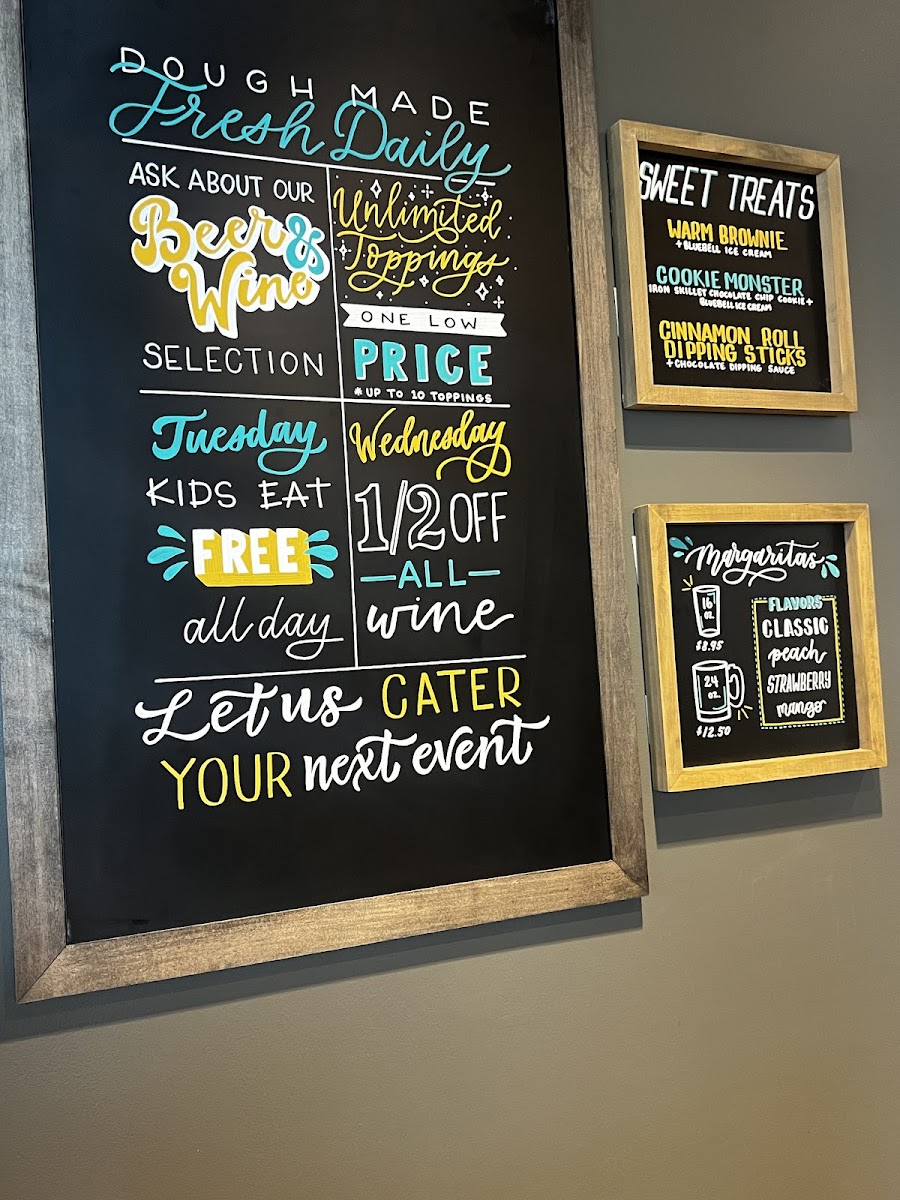 DOUGH MADE
Fresh Daily
ASK ABOUT OUR
Beer &
Wine
SELECTION
Unlimited
Toppings
ONE LOW
PRICE
*UP TO 10 TOPPINGS
Tuesday
KIDS EAT
FREE
all day
Wednesday
1/2 OFF
-ALL-
wine
Let us CATER
YOUR next event
SWEET TREATS
WARM BROWNIE
+BLUEBELL ICE CREAM
COOKIE MONSTER
IRON SKILLET CHOCOLATE CHIP COOKIE+
BLUEBELL ICE CREAM
CINNAMON ROLL
DIPPING STICKS
+CHOCOLATE DIPPING SAUCE
Margaritas
16
oz.
$8.95
24
oz.
$12.50
FLAVORS
CLASSIC
peach
STRAWBERRY
mango